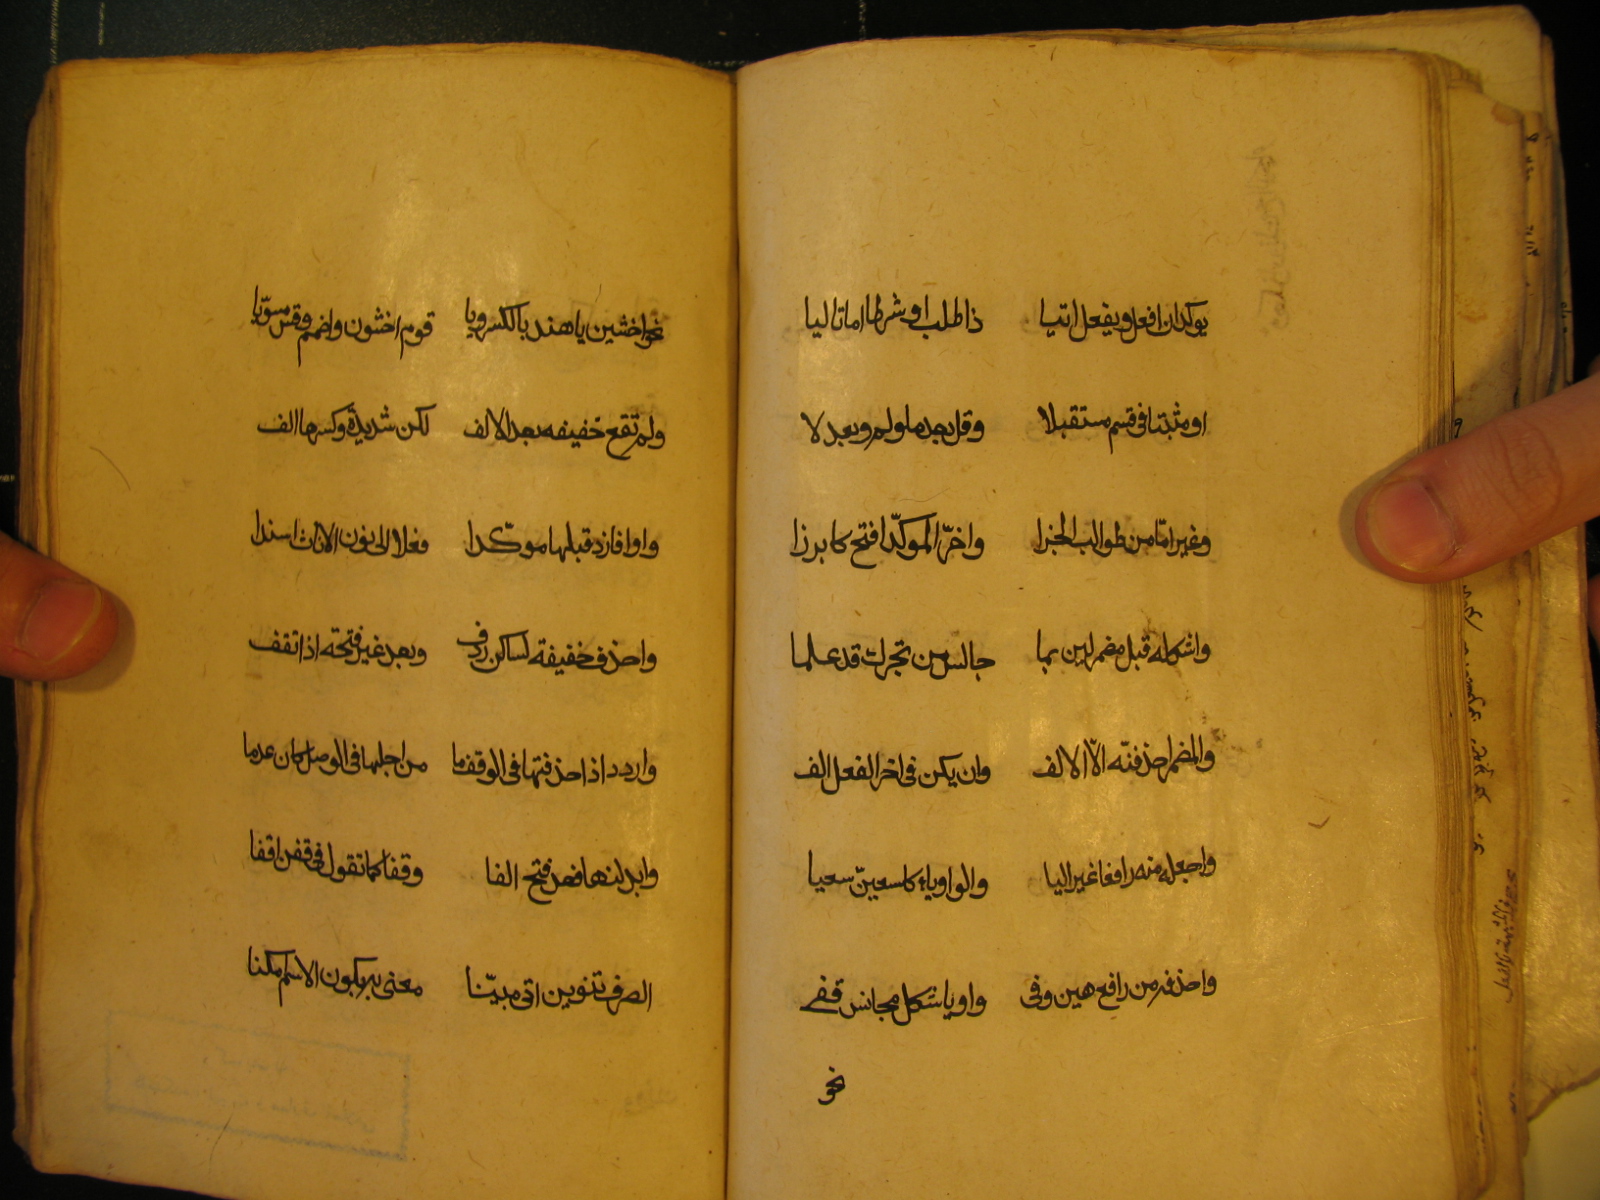 يوكدان افعل ويفعل اتيا ذا طلب او شرطا اما تاليا
او مثبتا فى قسم مستقبلا وقل بعد ما ولم وبعد لا
وغير اما من طوالب الجزا واخر الموكد افتح كابرزا
واشكله قبل مضمر لين بما جانس من تحرك قد علما
والمضمر احذفنه الا الالف وان يكن فى اخر الفعل الف
واجعله منه رافعا غير اليا والواو ياء كاسعين سعيا
واحذفه من رافع هين وفى واو ويا شكل مجانس قفى
نحو
نحو اخشين يا هند بالكسر ويا قوم اخشون واضمم وقس مسويا
ولم تقع خفيفه بعد الالف لكن شديدة وكسرها الف
والفا زد قبلها موكدا فعلا الى نون الاناث اسندا
واحذف خفيفة لساكن ردف وبعد غير فتحه اذا تقف
واردد اذا حذفتها فى الوقف ما من اجلها فى الوصل كان عدما
وابدلنها بعد فتح الفا وقفا كما تقول فى قفن قفا
الصرف تنوين اتى مبينا معنى به يكون الاسم امكنا